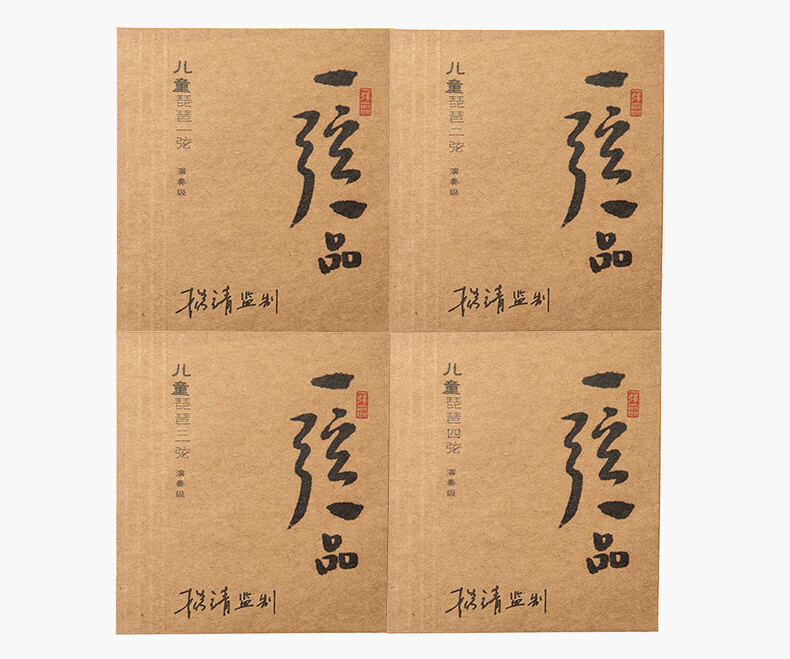 儿童琵琶一弦
演奏级
一弦一品
杨靖监制
儿童琵琶二弦
演奏级
一弦一品
杨靖监制
儿童琵琶三弦
演奏级
一弦一品
杨靖监制
儿童琵琶四弦
演奏级
一弦一品
杨靖监制